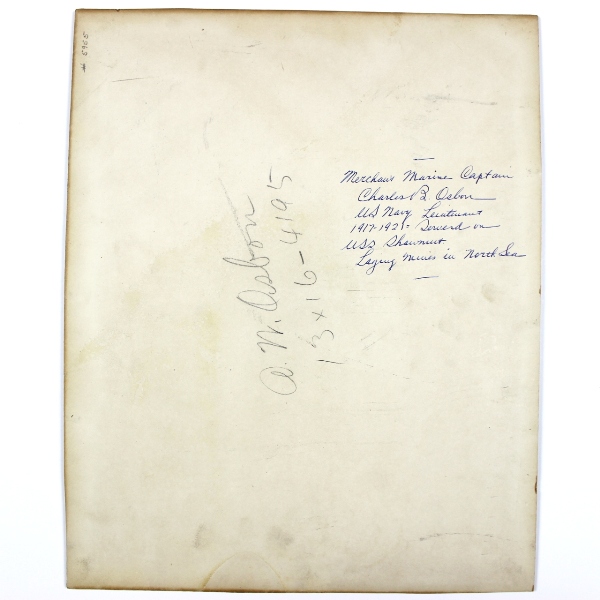 # 5965
Merchant Marine Captain
Charles B. Osbon
US Navy Lieutenant
1917-1921= Served on
USS Shawmut
Laying Mines in North Sea
A. W. Osbon
13x16-4195